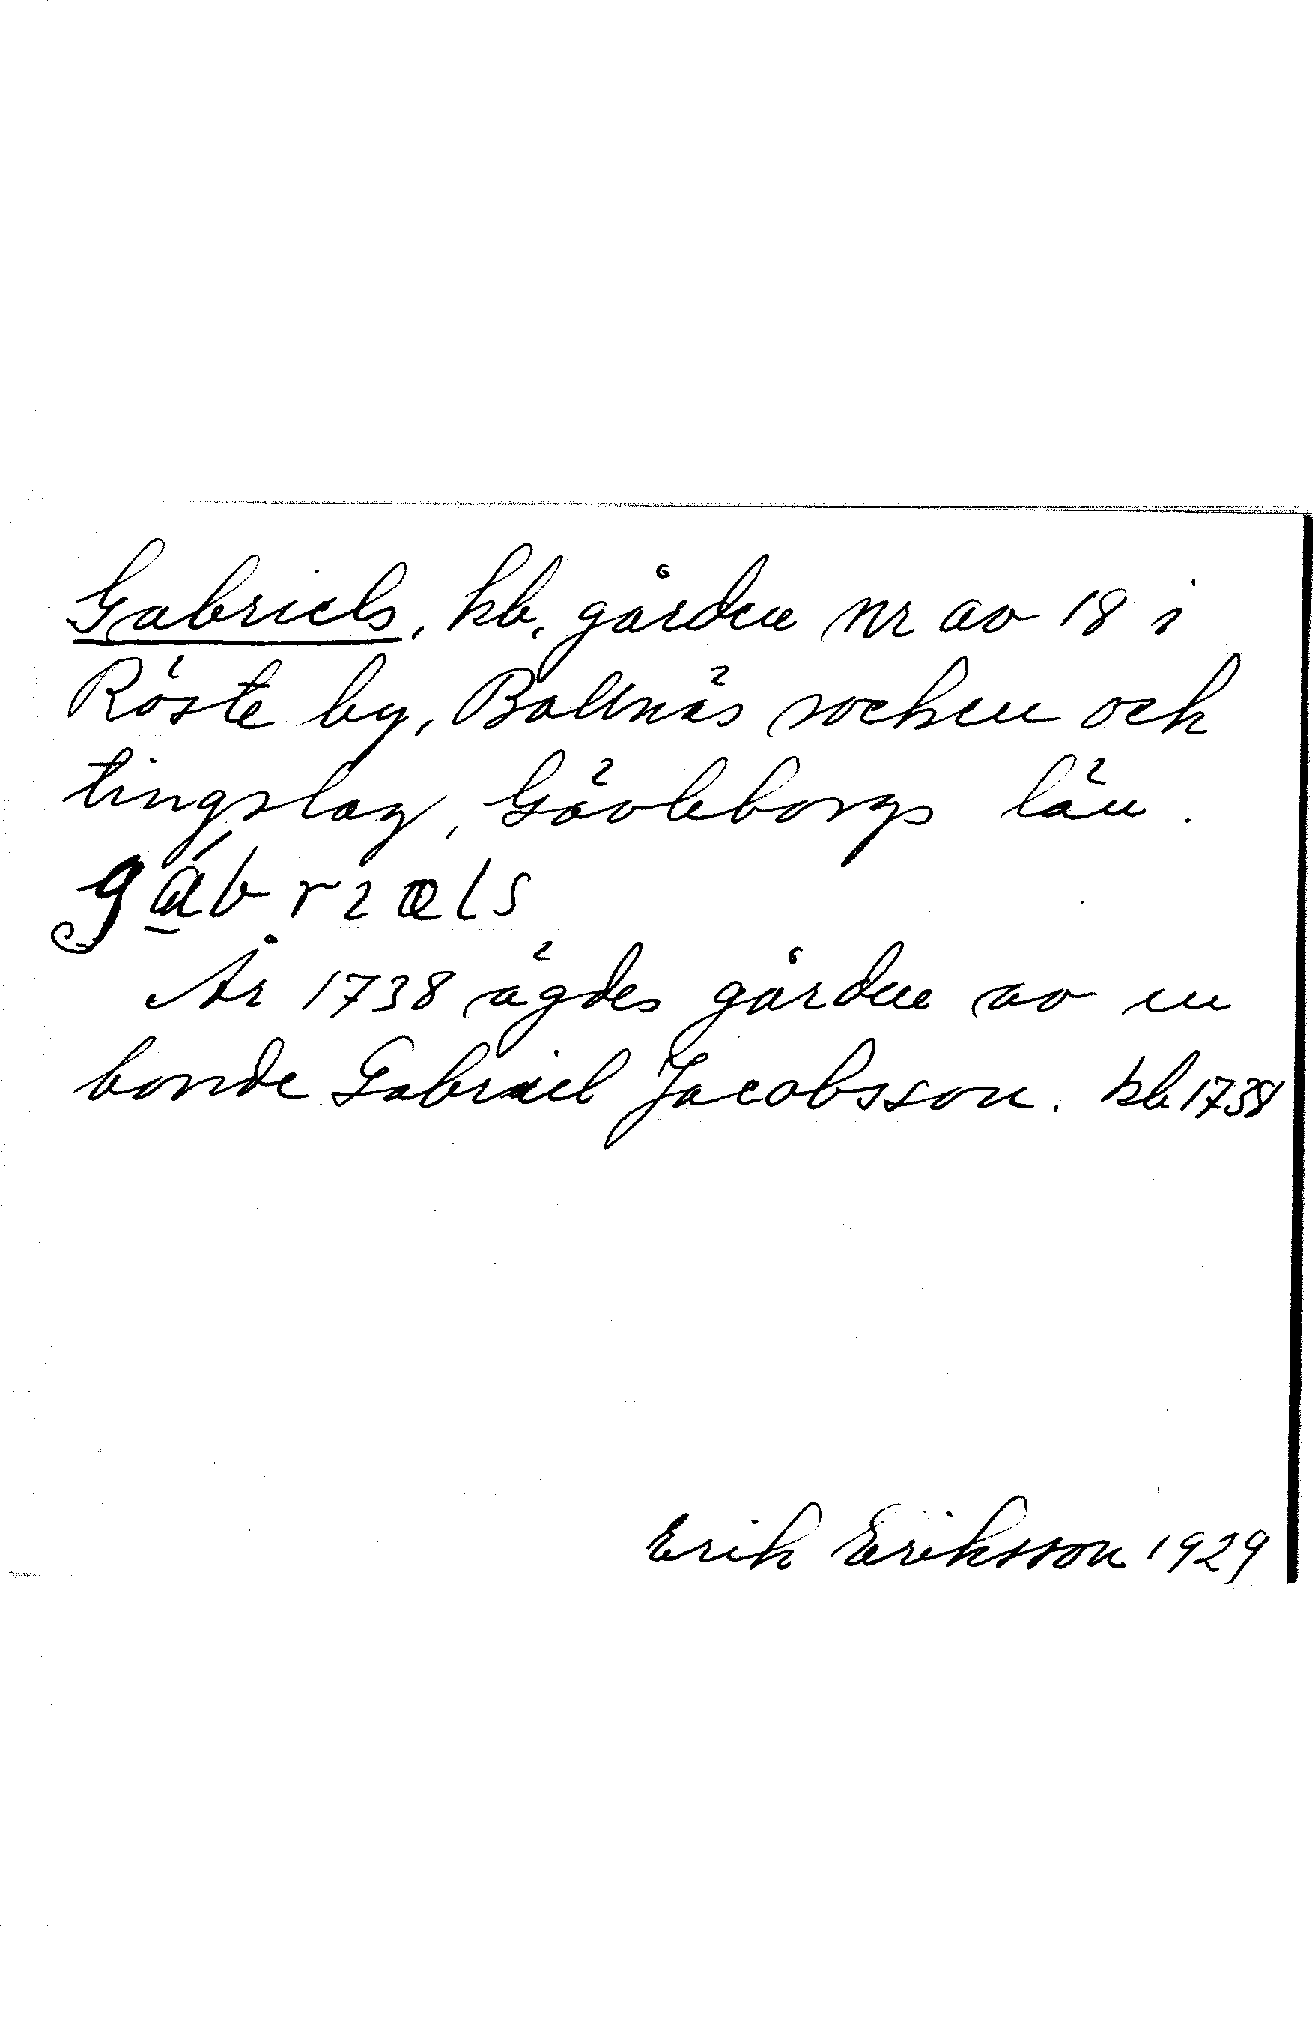 Gabriels, kb, gården nr av 18 i
Röste by, Bollnäs socken och
tingslag, Gävleborgs län.
År 1738 ägdes gården av en
bonde Gabriel Jacobsson. kb 1738
Erik Eriksson 1929